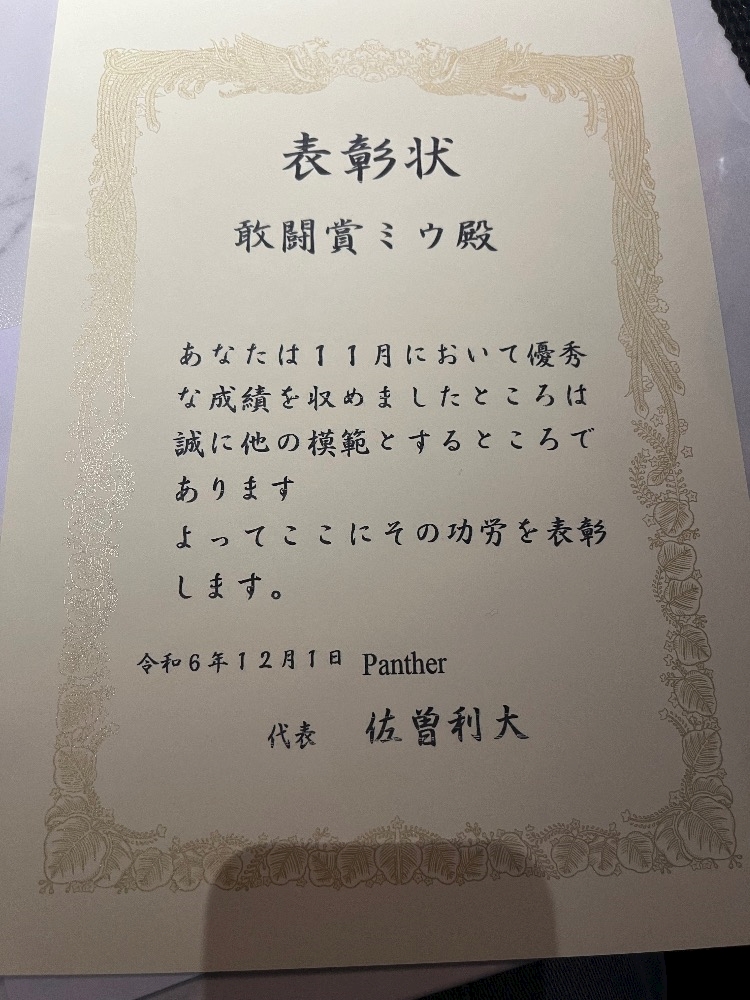 表彰状
敢闘賞ミウ殿
あなたは11月において優秀
な成績を収めましたところは
誠に他の模範とするところで
あります
よってここにその功労を表彰
します。
令和6年12月1日 Panther
代表 佐曽利大